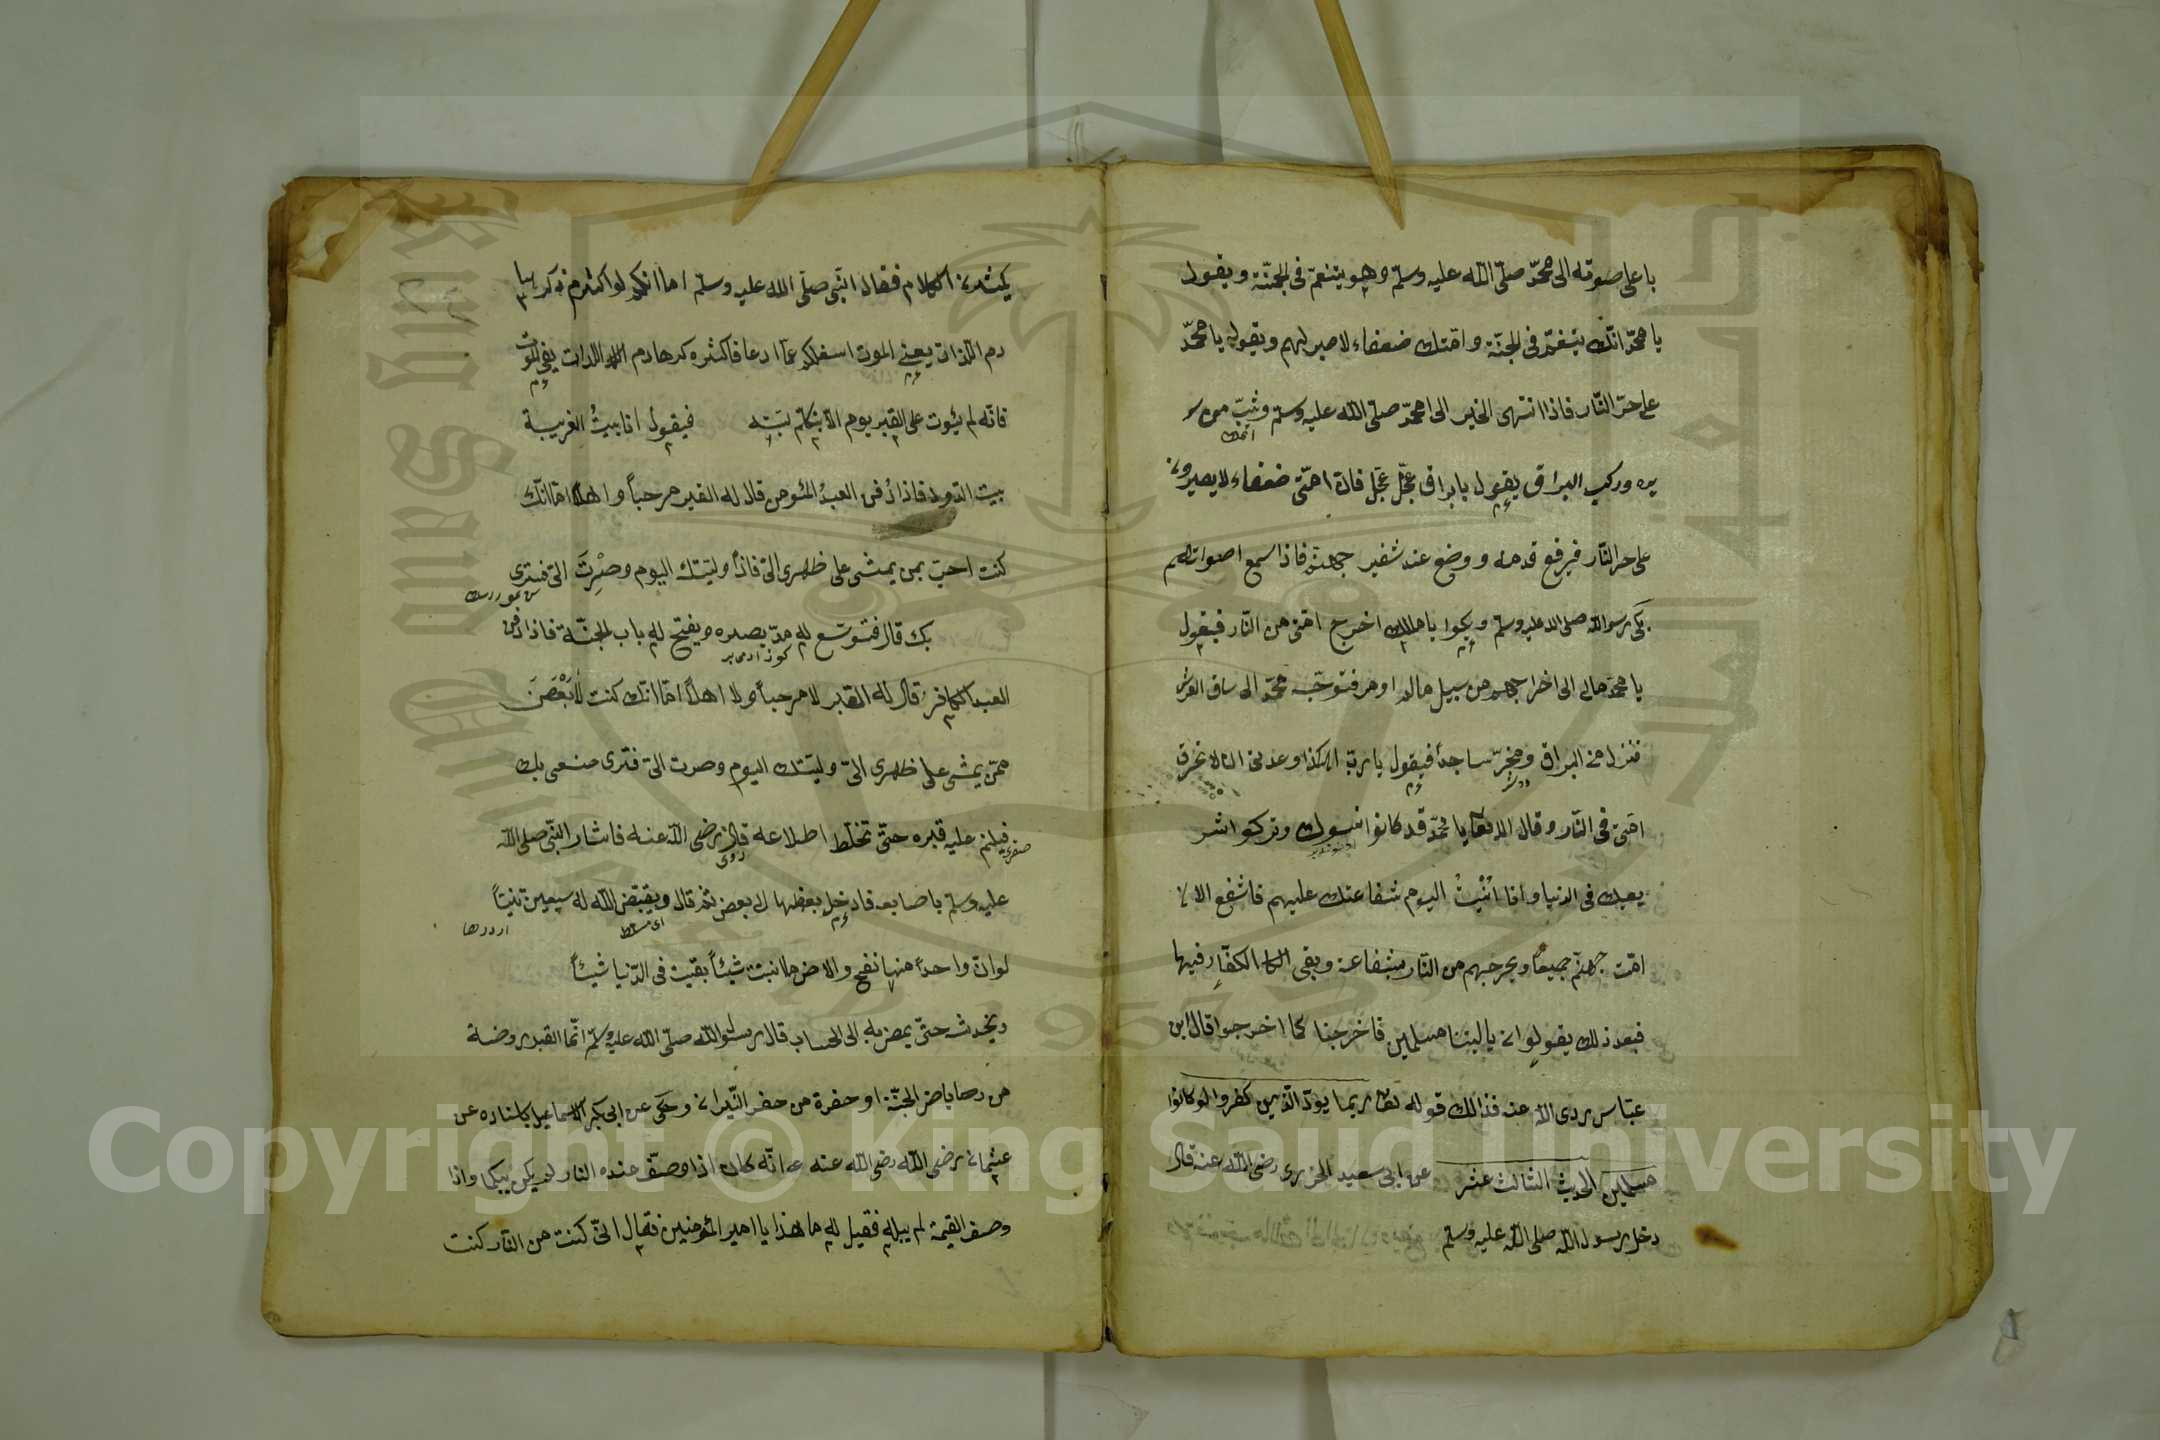 باعلى صوته الى محمّد صلّى اللّه عليه وسلّم وهو يتنعّم فى الجنّة ويقول
يا محمّد انّك يتنعّم فى الجنّة وامّتك ضعفاء لا صبر لهم ويقول يا محمّد
على حرّ النّار فاذا انتهى الخبر الى محمّد صلّى اللّه عليه وسلّم وثب من سر
يره وركب البراق يقول يا براق عجّل عجّل فانّ امّتى ضعفاء لا يصبرون
على حر النّار فيرفع قدمه ووضع عند شفير جهنّم فاذا سمع اصواتهم
بكى رسول اللّه صلى الله عليه وسلّم ويكوا يا مالك اخرج امّتى من النّار فيقول
يا محمّد مالى الى اخراجهم من سبيل مالم اومر فتوجّه محمّد الى ساق العرش
فنزل من البراق ويخرّ ساجداً فيقول يا ربّ اهكذا وعدتنى ان لا تحرق
امّتى فى النّار وقال الله تعا يا محمّد قد كانوا نسوك وتركوا شر
يعتك فى الدنيا وانا انسيت اليوم شفاعتك عليهم فاشفع الان
امّت جهنّم جميعاً ويخرجهم من النّار بشفاعته وبقى الكفّار فيها
فبعد ذلك يقولون يا ليتنا مسلمين فاخرجنا كما اخرجوا قال ابن
عبّاس رضى الله عنه فذلك قوله تعا ربما يودّ الّذين كفروا لو كانوا
مسلمين الحديث الثالث عشر عن ابى سعيد الخدرى رضى اللّه عنه قال
دخل رسول اللّه صلى اللّه عليه وسلّم
يكثرون الكلام فقال النّبى صلّى اللّه عليه وسلّم اما انكم لو اكثرتم ذكر ها
دم اللّذات يعنى الموت اشغلكم عمّا ارى فاكثروا ذكر هادم اللذات يعنى الموت
فانّه لم يئوت على القبر يوم الّا يتكلّم بيته فيقول انا بيت الغربة
بيت الدّود فاذا دُفن العبدُ المئومن قال له القبر مرحباً واهلاً امّا انّك
كنت احبّ بمن يمشى على ظهرى الىّ فاذا وليتك اليوم وصِرْتَ الىّ فسترى
بك قال فتوسّع له مدّ بصره ويفتح له باب الجنّة فاذا دفن
العبد الكافر قال له القبر لا مرحباً ولا اهلاً امّا انّك كنت لَاَبْغَضَ
ممّن يمشى على ظهرى الىّ وليتك اليوم وصرت الىّ فترى صنعى بك
فيلئم عليه قبره حتّى تختلط اضلاعه قال رضى اللّه عنه فاشار النّبى صلى اللّه
عليه وسلّم باصابعه فادخل بعضها الى بعض ثمّ قال ويقيّض اللّه له سبعين تنيناً
لو انّ واحداً منها نفخ والارض ما انبتت شيئاً بقيت فى الدّنيا شيئاً
ويخدشه حتّى يمضى به الى الحساب قال رسول اللّه صلّى اللّه عليه وسلّم انّما القبر روضة
من رياض الجنّة او حفرة من حفر النّيران وحكى عن ابى بكر الاسماعيل باسناده عن
عثمان رضى اللّه رضى اللّه عنه انّه كان اذا وصف عنده النار لم يكن يبك واذا
وصف القيمة لم يبك فقيل له ما هذا يا امير المؤمنين فقال انّى كنت من النّار كنت
Copyright © King Saud University
King Saud University
جامعة الملك سعود
1957